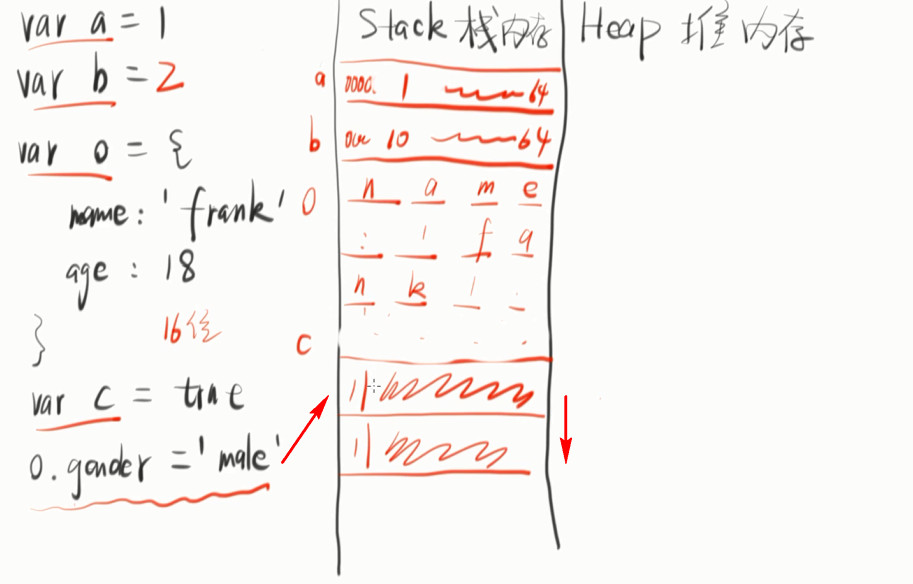 var a = 1
var b = 2
var o = {
name: 'frank'
age : 18
}
16位
var c = true
o.gender = 'male'
Stack 栈内存
Heap 堆内存
a
0000. 1 64
b
10 64
o
n a m e
: ' f a
n k ' .
c